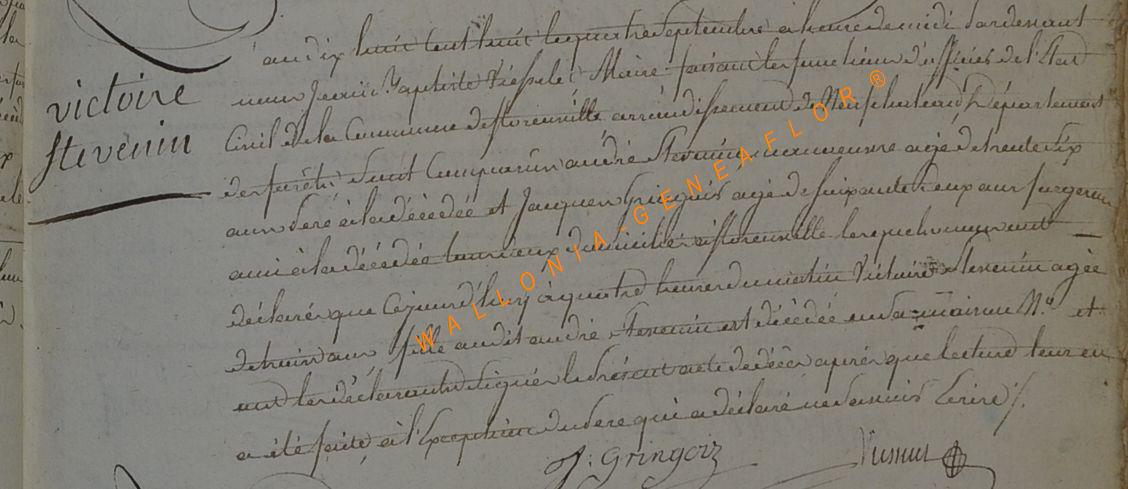 victoire
Stevenin
an dix huit cent huit le quatre septembre a heure de midi pardevant
nous Jean Baptiste Maire faisant les fonctions d'officiers de l'Etat
Civil de la Commune de Florenville arrondissement de Neufchateau Département
des forêts sont comparus andré Stevenin manoeuvre agé de trente six
ans Pere à la décédée et Jacques Gringois agé de soixante deux ans
ami à la décédée tous deux domiciliés à florenville lesquels nous ont
déclarés que cejourd'huy à quatre heures du matin Victoire Stevenin agée
de trois ans fille audit andré Stevenin est décédée en sa maison N.° et
ont les déclarants signés le présent acte de décès après que lecture leur en
a été faite, à l'Exception du Pere qui a déclaré ne savoir Ecrire /.
J: Gringoiz
WALLONIA-GENEAFLOR®